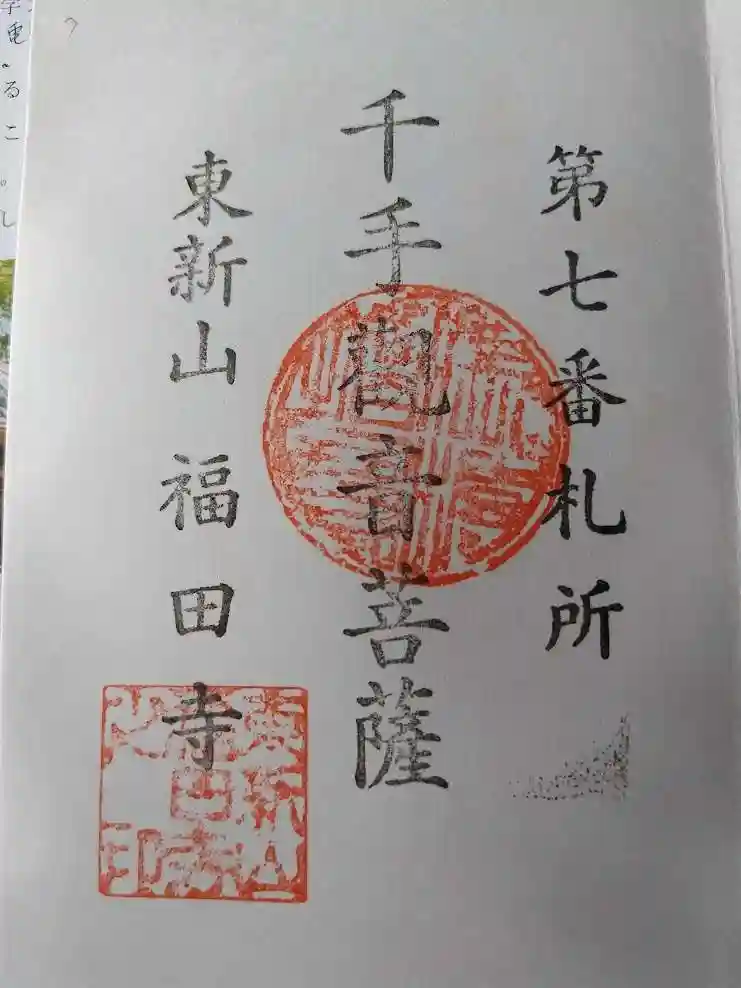 第七番札所
千手觀音菩薩
東新山 福田寺